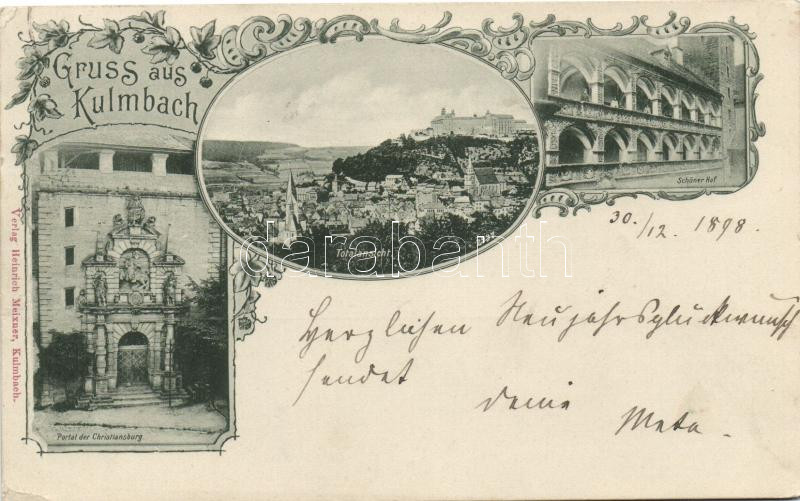 Gruss aus
Kulmbach
Totalansicht
Schöner Hof
Portal der Christiansburg
Verlag Heinrich Meixner, Kulmbach.
30./12. 1898.
Herzlichen Neujahrsglückwunsch
sendet deine Meta.
darabanth